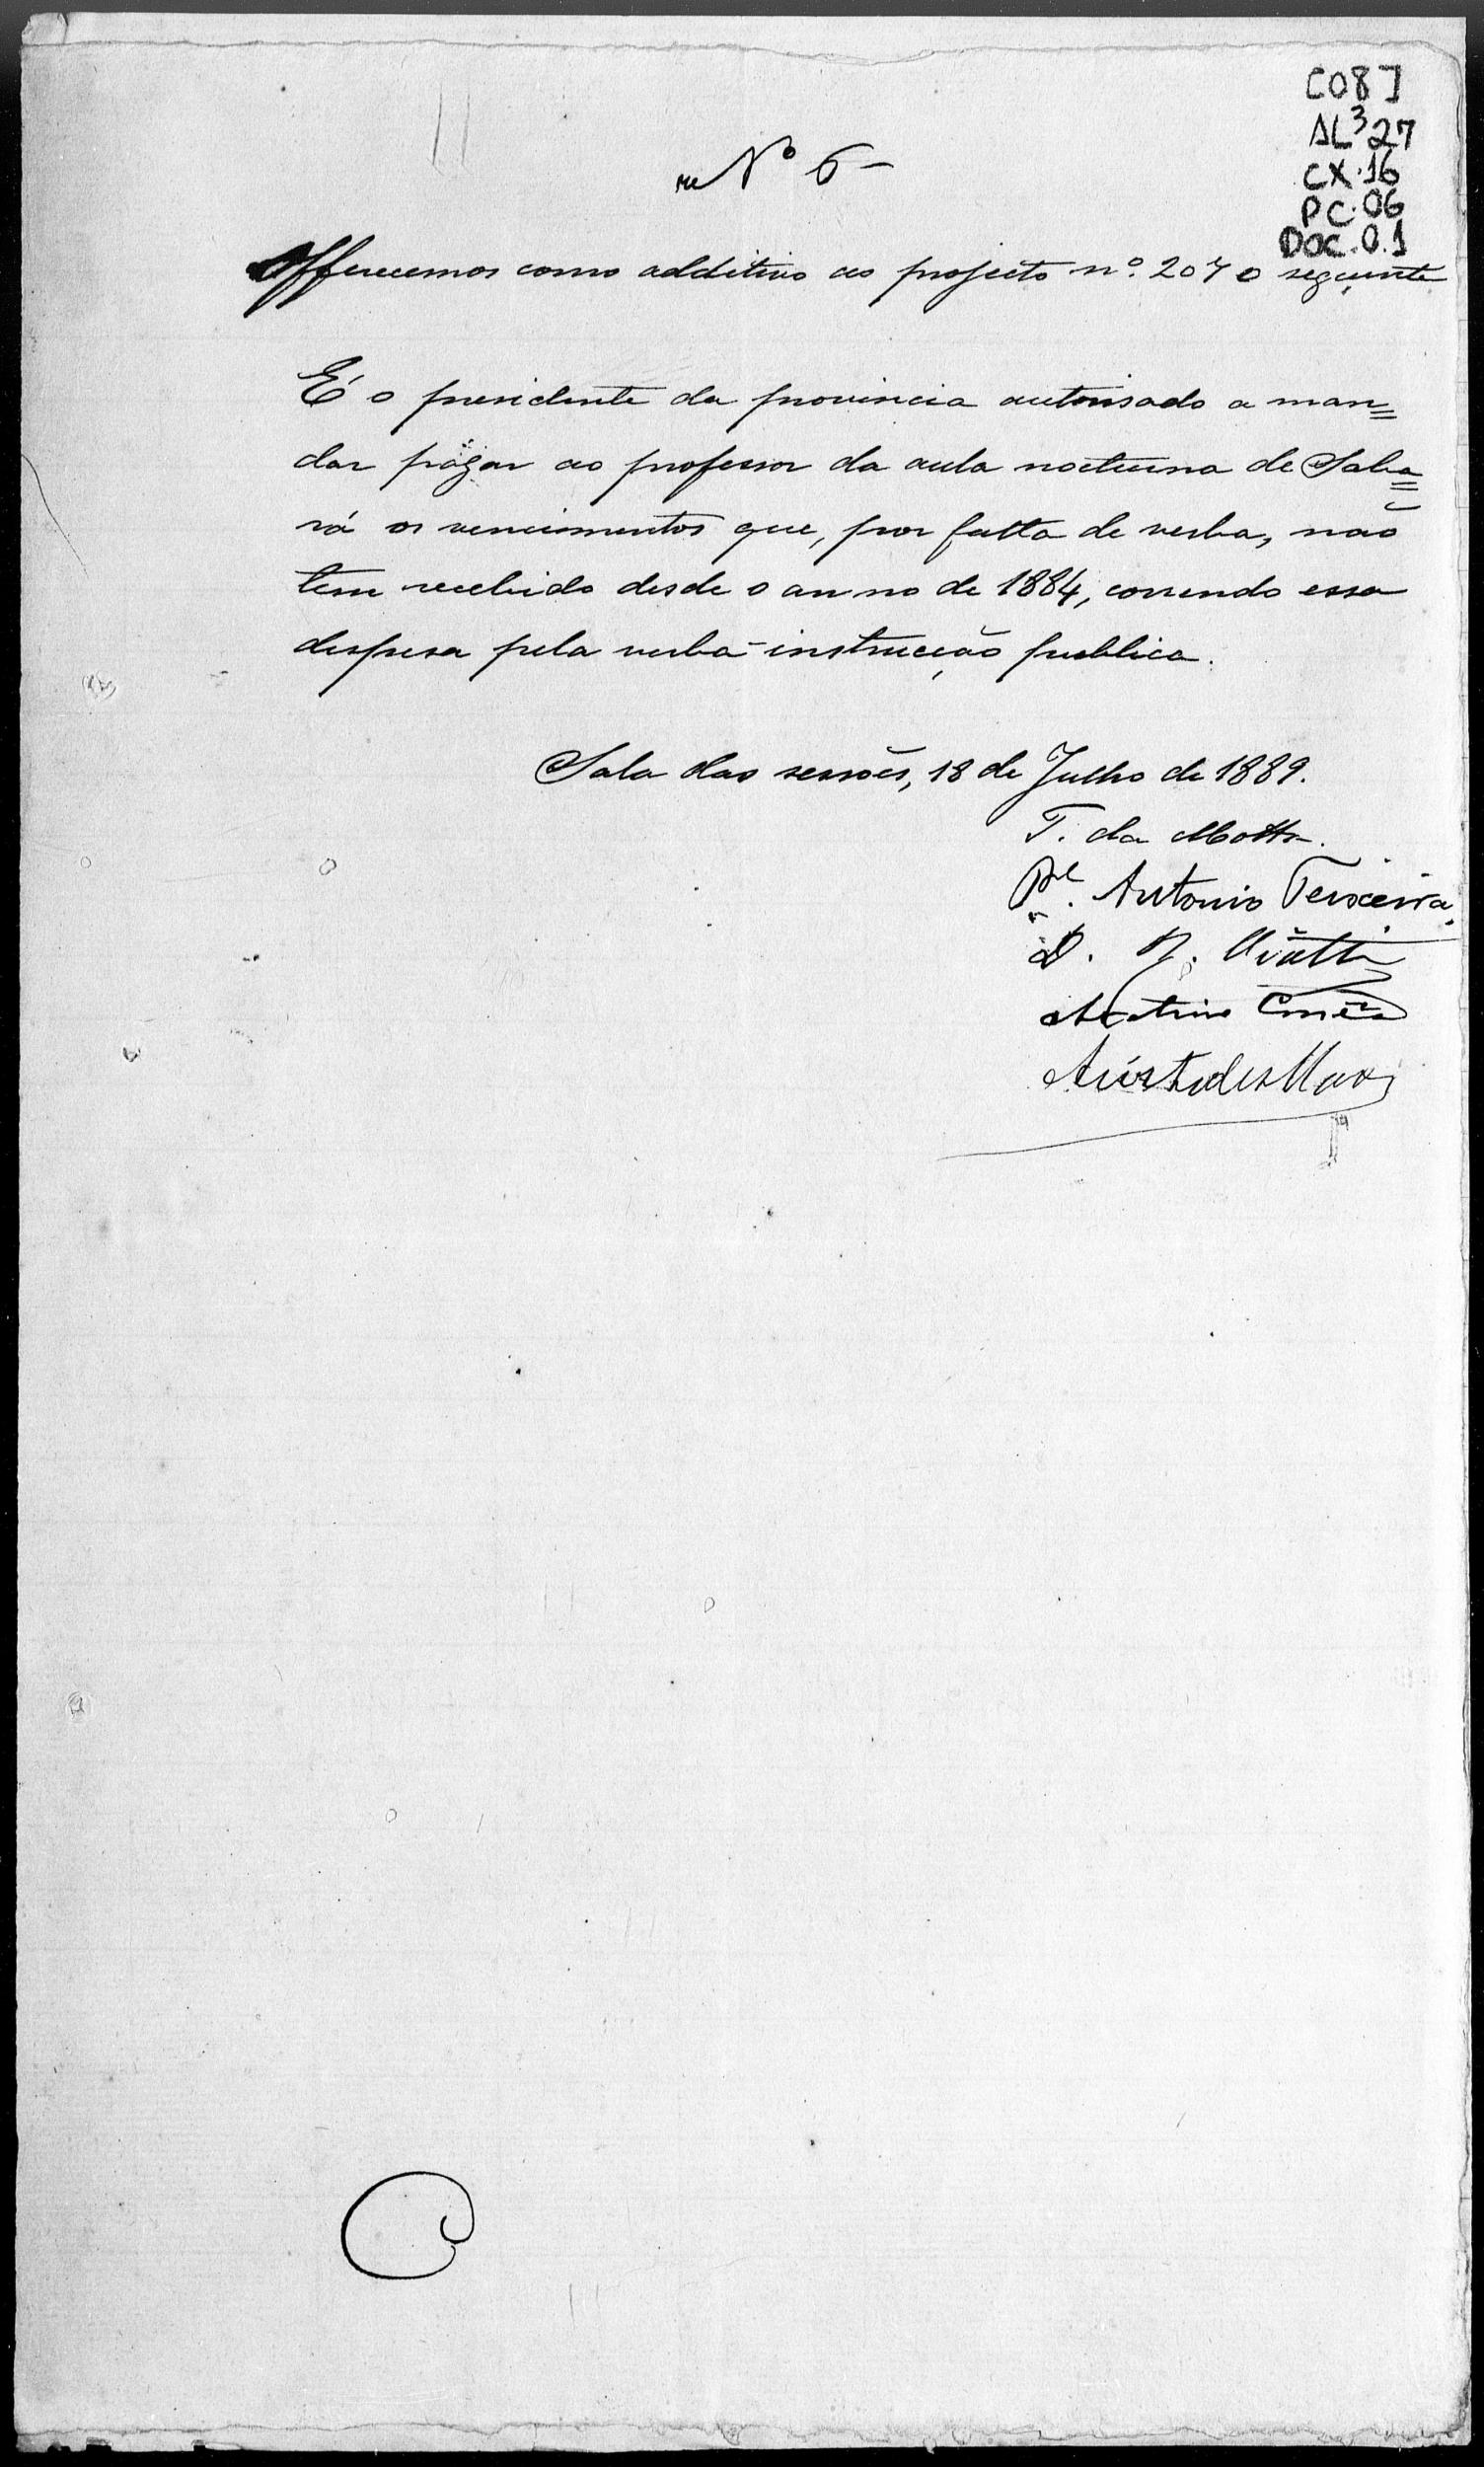 [08]
AL³27
CX.16
PC.06
DOC.01
Nº 6-
Offerecemos como additivo ao projecto nº. 207 o seguinte
É o presidente da provincia autorisado a man=
dar págar ao professor da aula nocturna de Saba=
rá os vencimentos que, por falta de verba, não
tem recebido desde o anno de 1884, correndo essa
despesa pela verba - instrucção publica.
Sala das sessões, 18 de Julho de 1889.
T. da Motta.
Pe. Antonio Teixeira
Aristides Maia